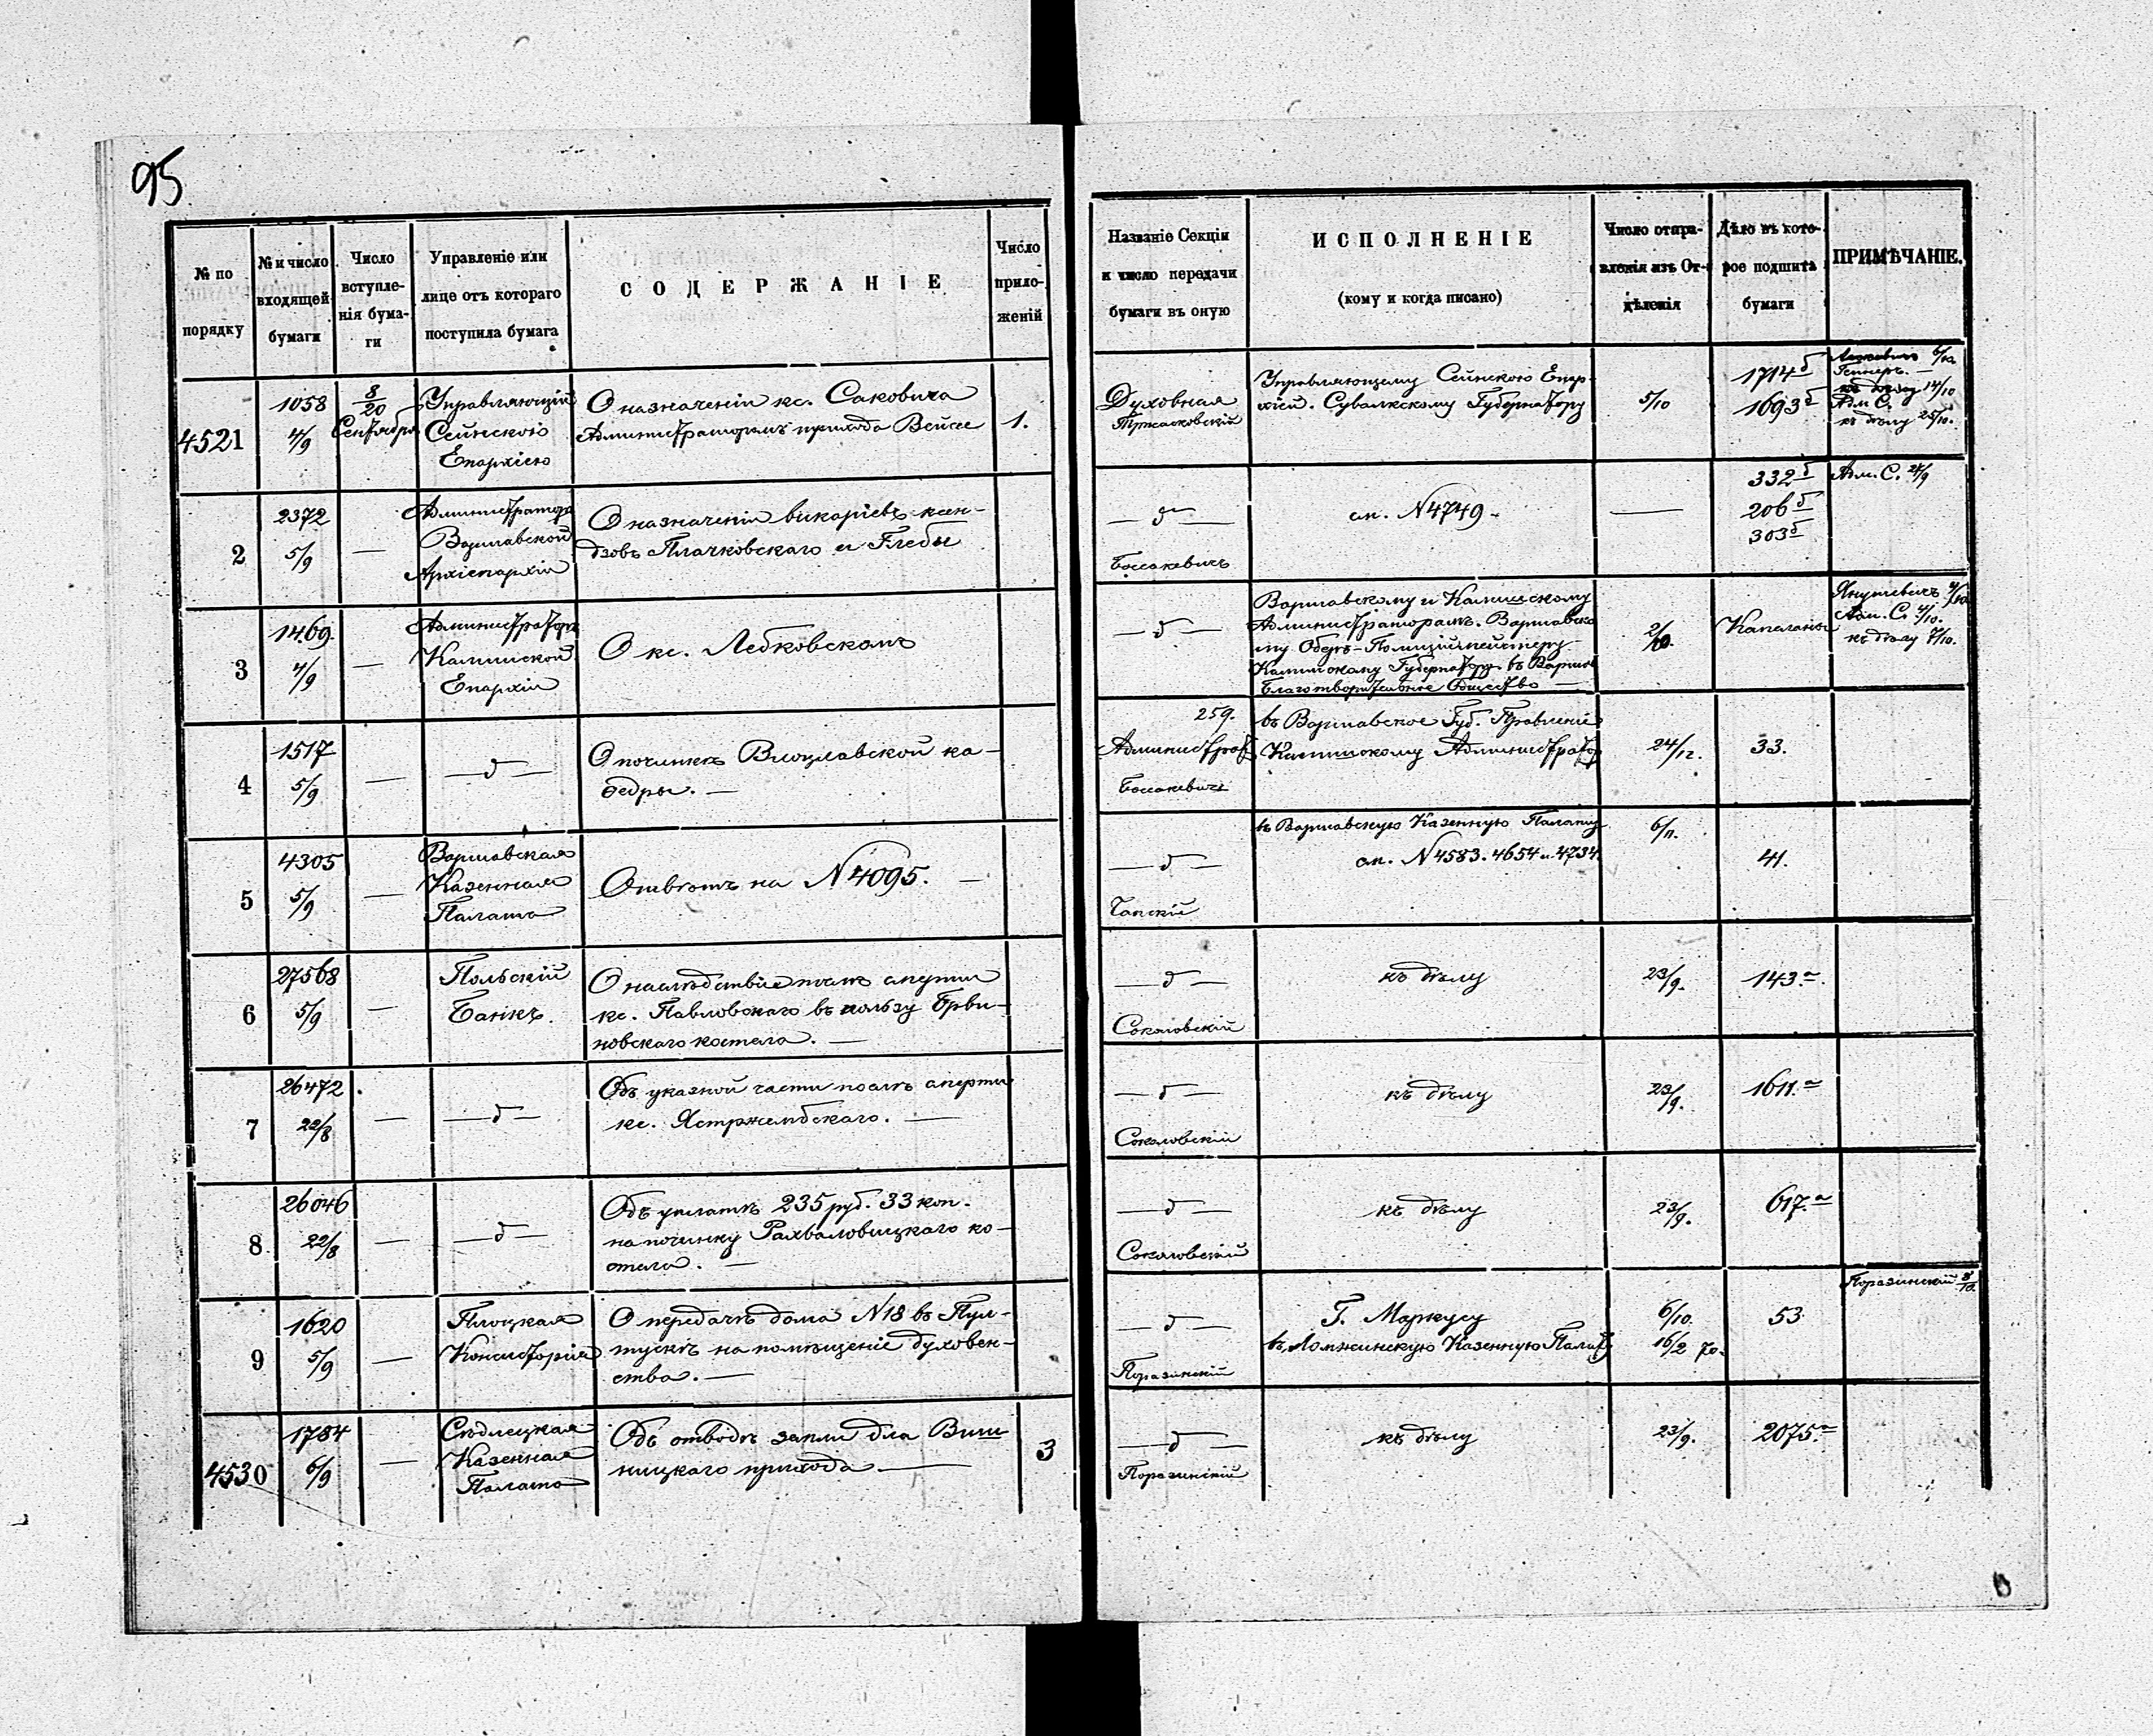 95
№ по порядку
№ и число входящей бумаги
Число вступле-нія бума-ги
Управленіе или лице отъ котораго поступила бумага
СОДЕРЖАНІЕ
Число прило-женій
Названіе Секціи и число передачи бумаги въ оную
ИСПОЛНЕНІЕ
(кому и когда писано)
Число отпра-вленія изъ От-дѣленія
Дѣло въ кото-рое подшита бумаги
ПРИМѢЧАНІЕ.
4521
1058
4/9
8/20
Сентября
Управляющій
Сейнскою
Епархіею
О назначеніи кс. Саковича
Администраторомъ прихода Вейсе
1.
Духовная
Управляющему Сейнскою Епар-
хіей. Сувалкскому Губернатору
5/10
1714 б
1693 б
6/10
14/10
Адм С.
къ дѣлу 25/10.
2
2372
5/9
—
Администраторъ
Варшавской
Архіепархіи
О назначеніи викаріевъ ксен-
дзовъ Плачковскаго и Глебы
— д —
Боссакевичъ
см. N 4749 -
—
332 б
206 б
303 б
Адм. С. 24/9
3
1469.
4/9
—
Администраторъ
Калишской
Епархіи
О кс. Лебковскомъ
— д —
Варшавскому и Калишскому
Администраторамъ. Варшавско
му Оберъ-Полиціймейстеру
Калишскому Губернатору въ Варшав
Благотворительное Общество —
2/10.
Капеланы
Янушевичъ 4/10
Адм. С. 4/10.
къ дѣлу 7/10.
4
1517
5/9
—
— д —
О починкѣ Влоцлавской ка-
ѳедры. —
259.
Администрат
Боссакевичъ
въ Варшавское Губ. Правленіе
Калишскому Администратору
24/12.
33.
5
4305
5/9
—
Варшавская
Казенная
Палата
Отвѣтъ на N 4095. —
— д —
Чапскій
въ Варшавскую Казенную Палату
см. N 4583. 4654 и 4734.
6/11.
41.
6
27568
5/9
—
Польскій
Банкъ.
О наслѣдствіи послѣ смерти
кс. Павловскаго въ пользу Брви-
новскаго костела. —
— д —
Соколовскій
къ дѣлу
23/9.
143. а
7
26472.
22/8
—
— д —
Объ указной части послѣ смерти
кс. Ястржембскаго. —
— д —
Соколовскій
къ дѣлу
23/9.
1611. а
8
26046
22/8
—
— д —
Объ уплатѣ 235 руб. 33 коп.
на починку Рахваловицкаго ко-
стела. —
— д —
Соколовскій
къ дѣлу
23/9.
617. а
9
1620
5/9
—
Плоцкая
Консисторія
О передачѣ дома N 18 въ Пул-
тускѣ на помѣщеніе духовен-
ства. —
— д —
Поразинскій
Г. Маркусу
въ Ломжинскую Казенную Палату
6/10.
16/2 70.
53
Поразинскій 8/10.
4530
1784
6/9
—
Сѣдлецкая
Казенная
Палата
Объ отводѣ земли для Виш
ницкаго прихода —
3
— д —
Поразинскій
къ дѣлу
23/9.
2075. а